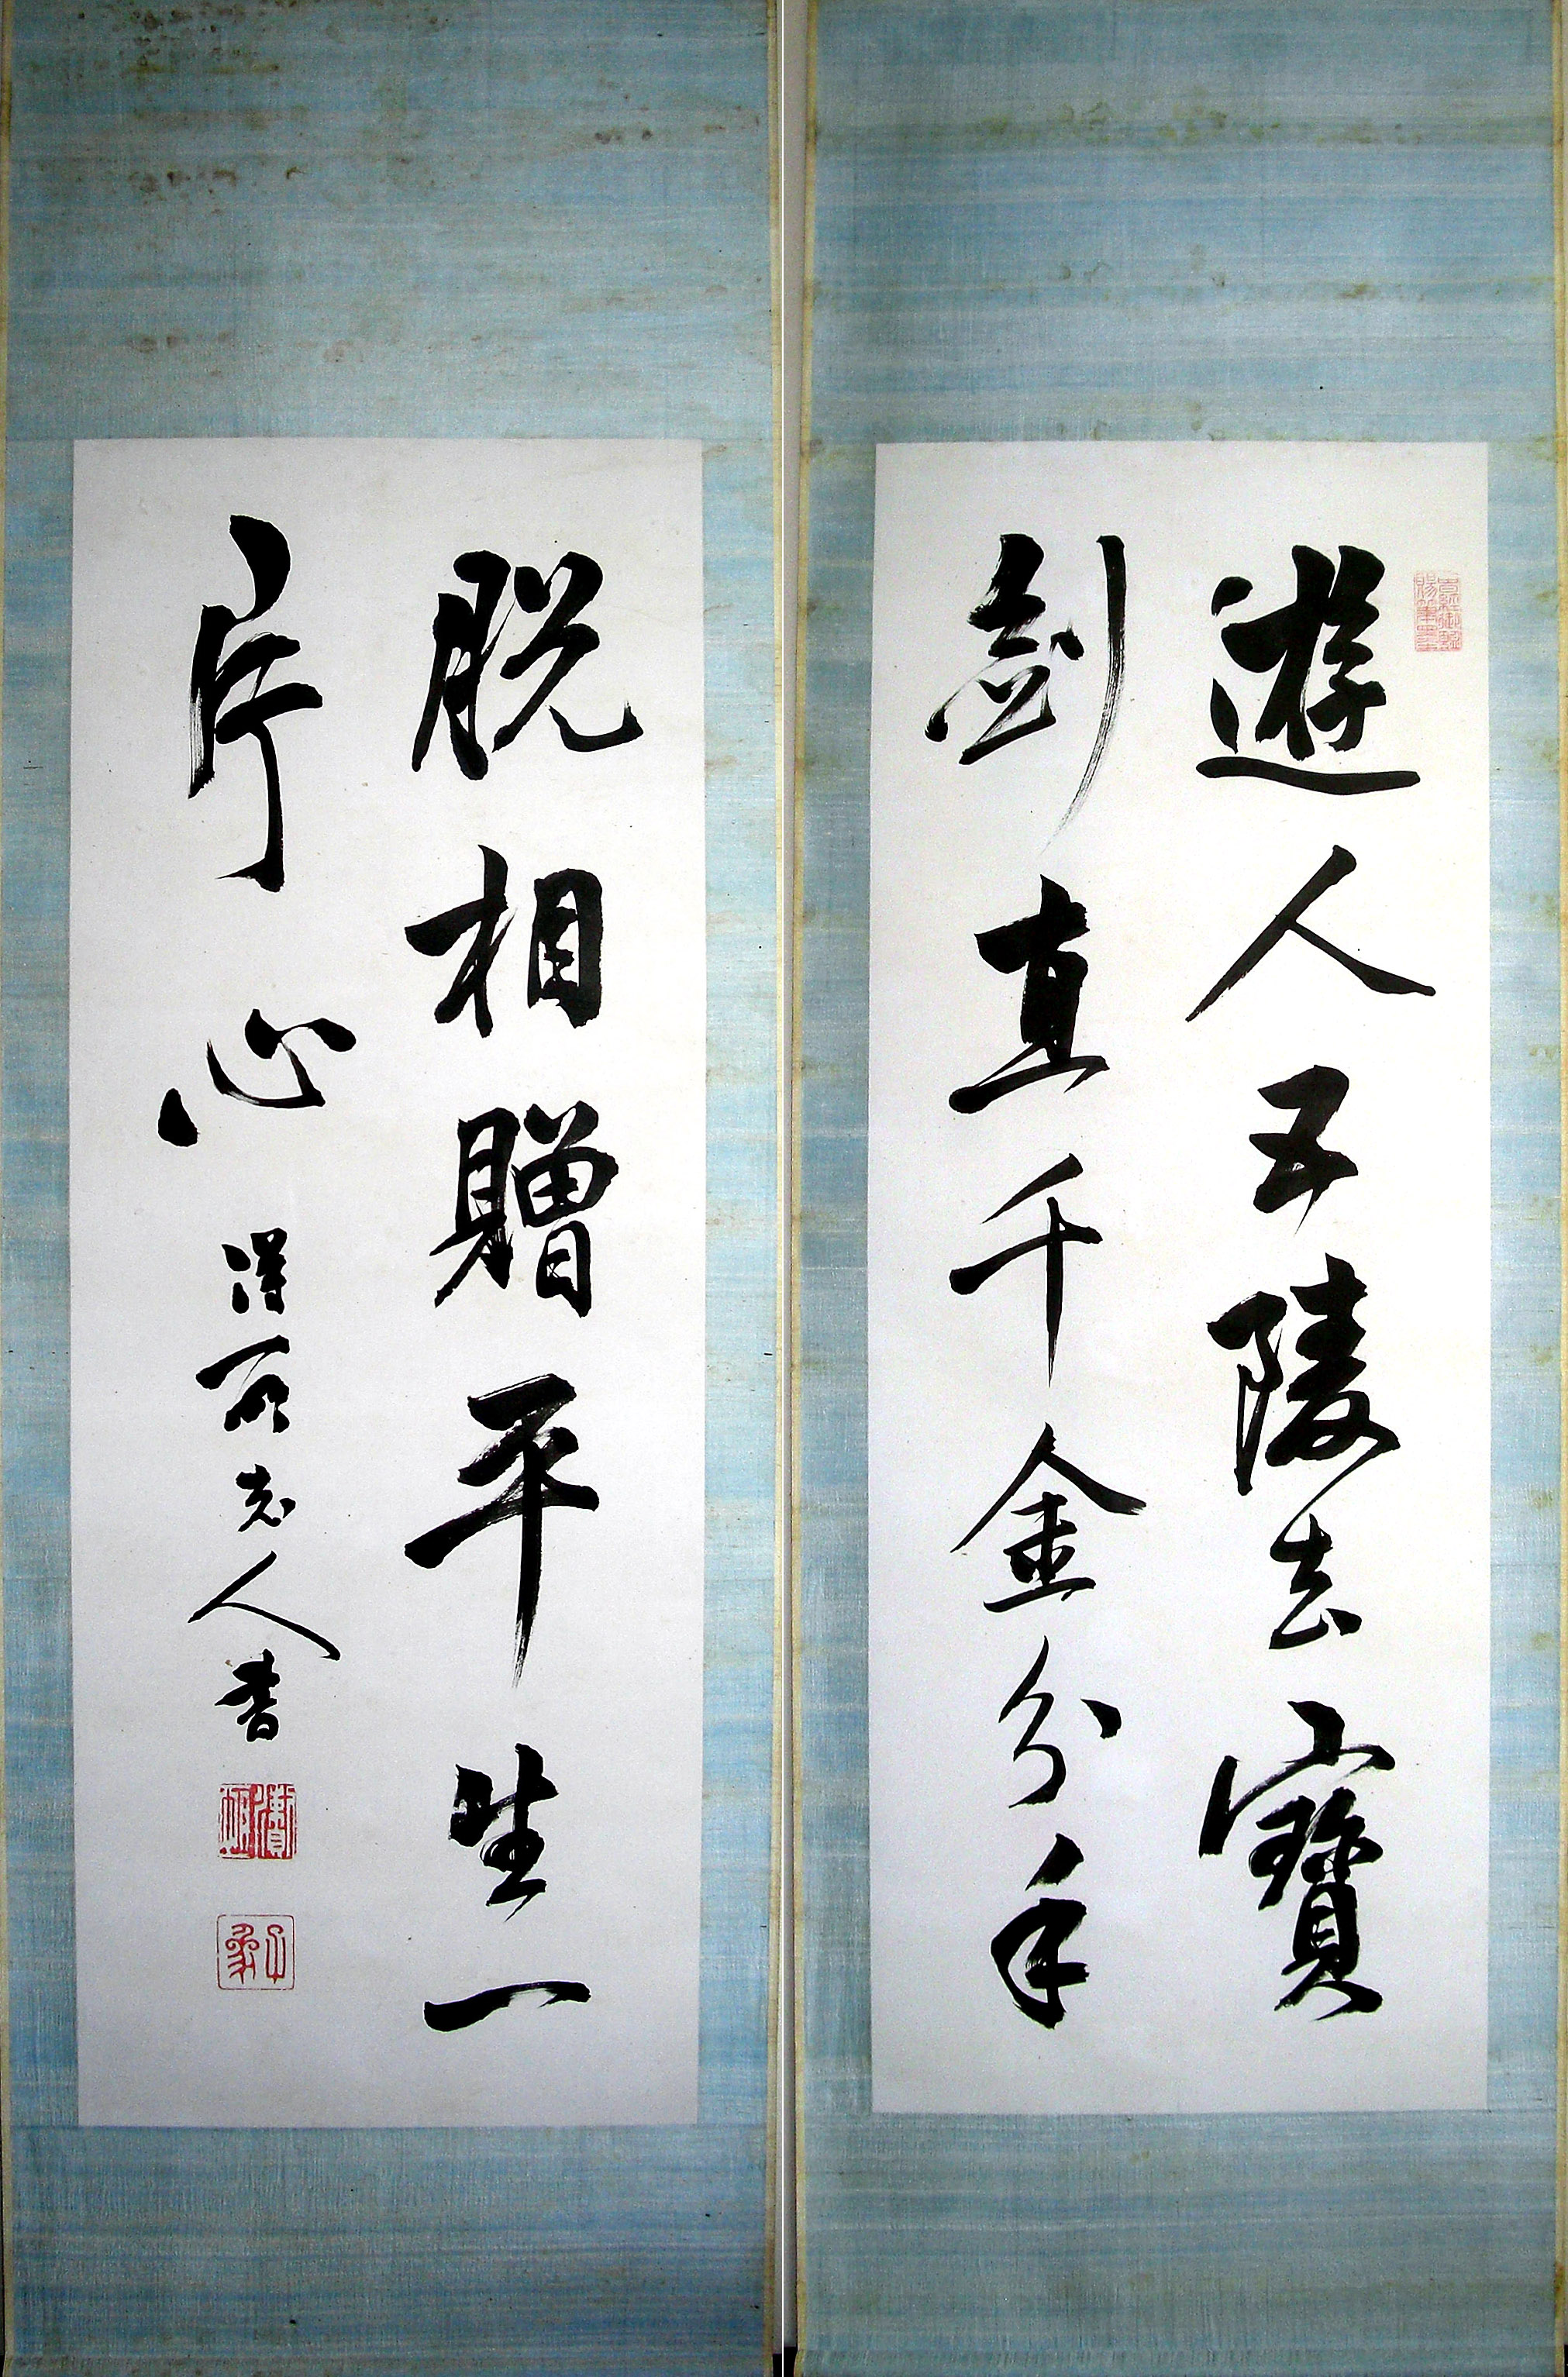 遊人五陵去寶
劍直千金分手
脱相贈平生一
片心
老人書